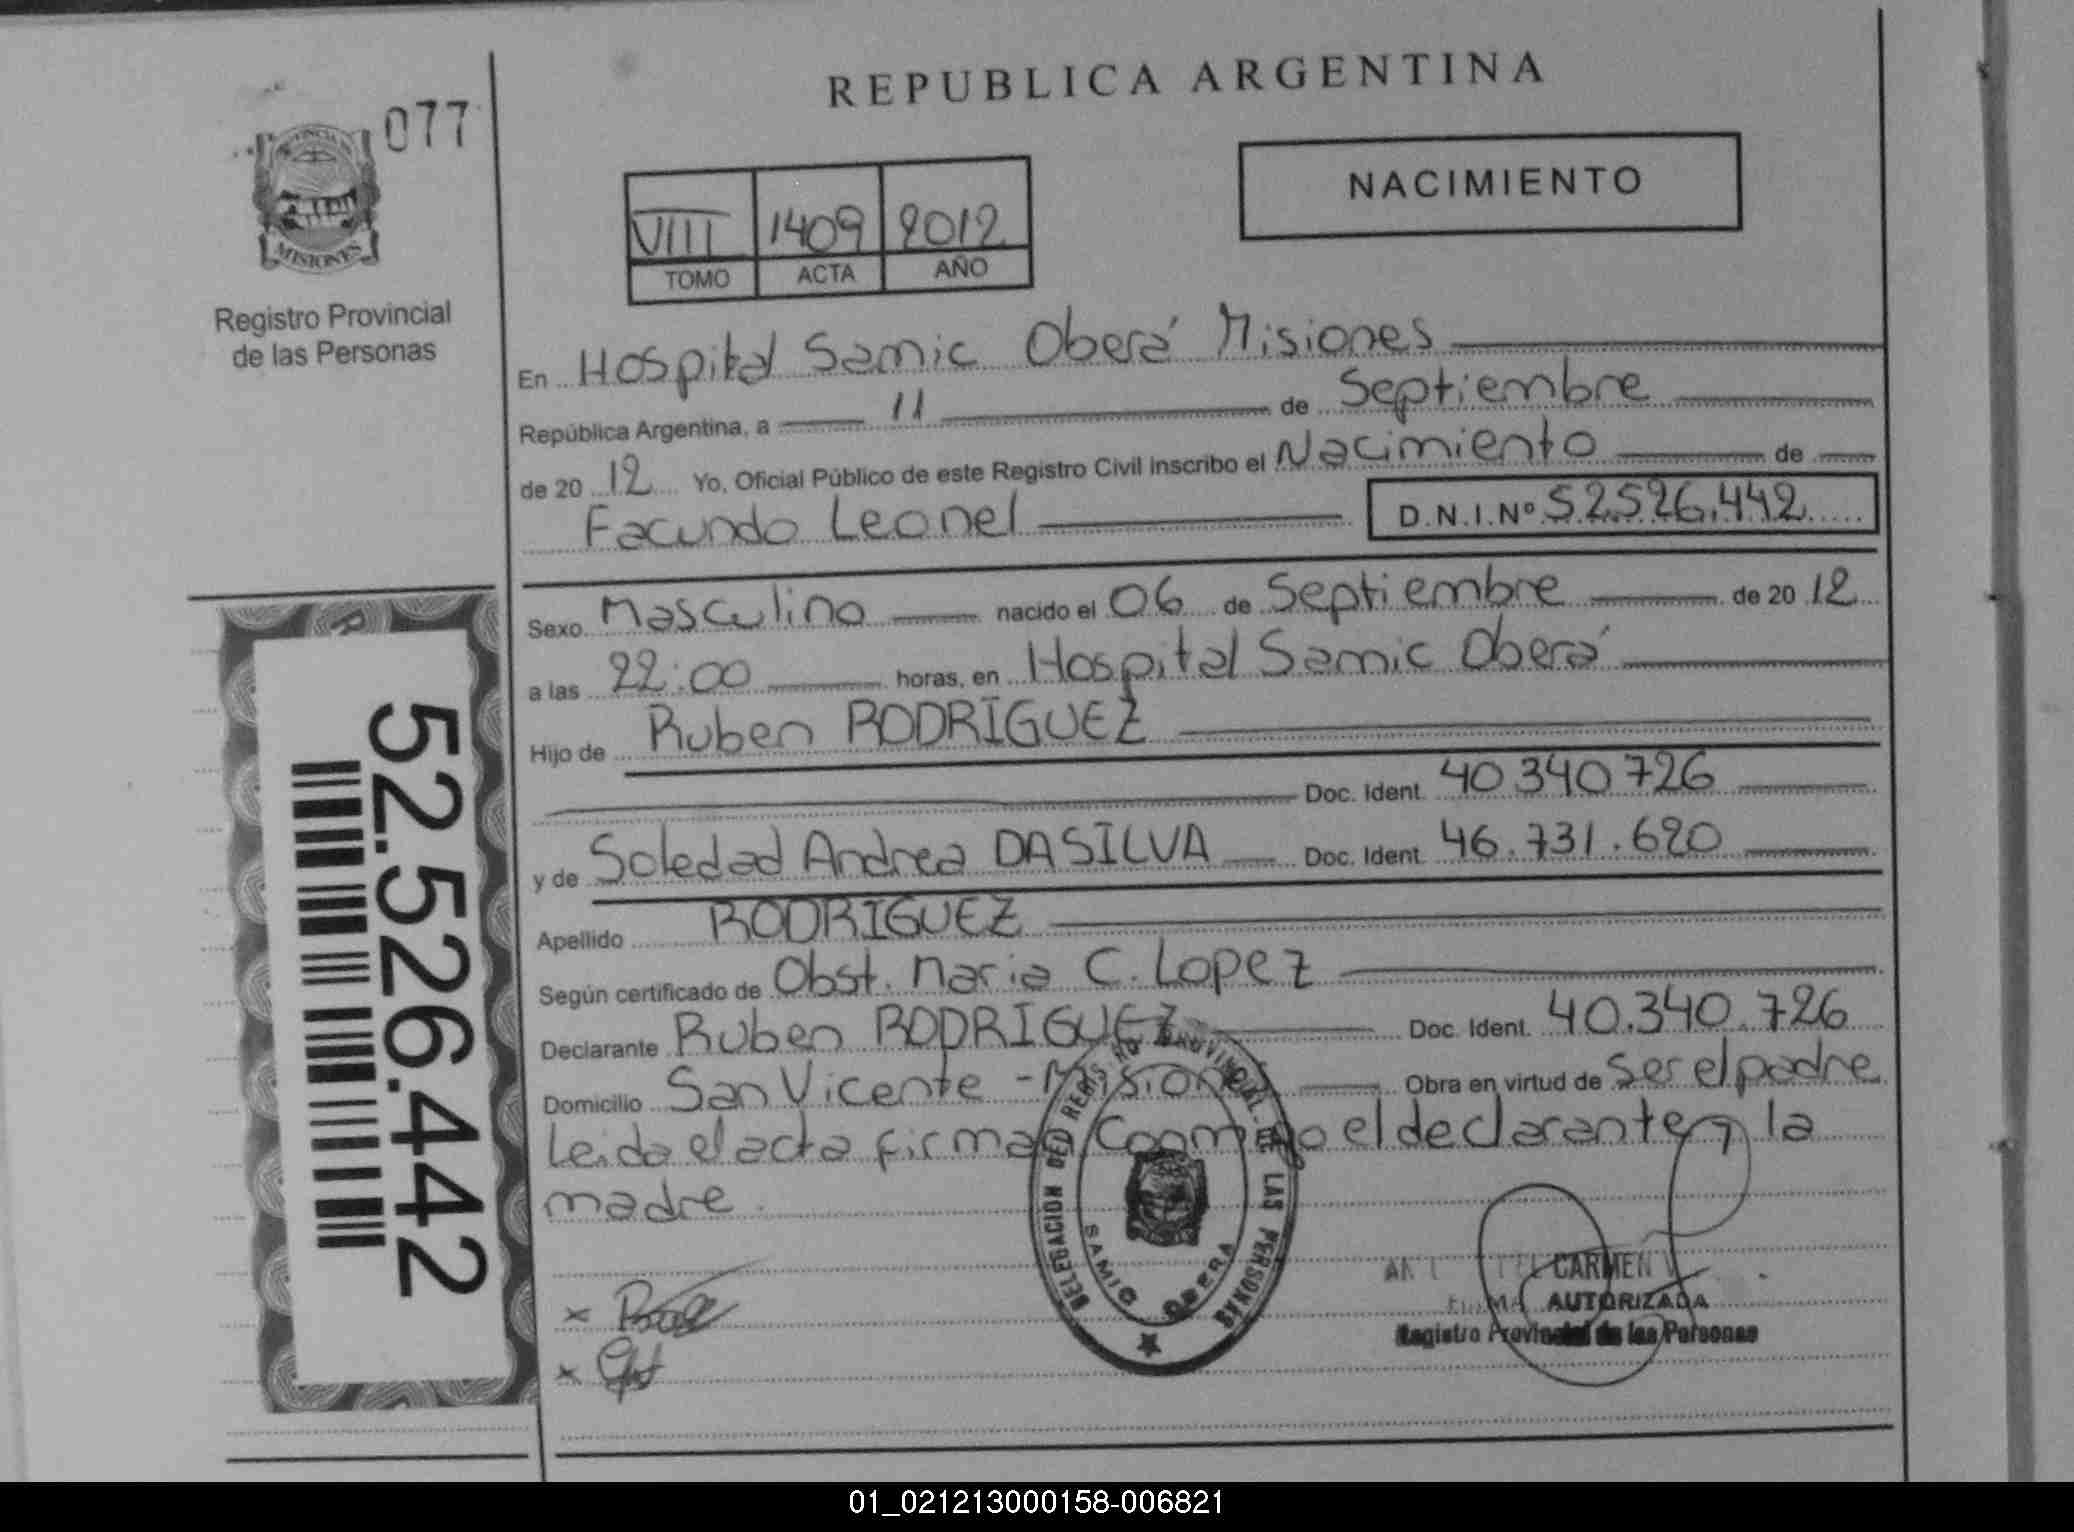 REPUBLICA ARGENTINA
077
NACIMIENTO
VIII 1409 2012
TOMO ACTA AÑO
MISIONES
Registro Provincial
de las Personas
En Hospital Samic Oberá Misiones
República Argentina, a 11 de Septiembre
de 2012 Yo, Oficial Público de este Registro Civil inscribo el Nacimiento de
Facundo Leonel D.N.I.Nº 52.526.442
Sexo Masculino nacido el 06 de Septiembre de 2012
a las 22:00 horas, en Hospital Samic Oberá
Hijo de Ruben RODRIGUEZ
Doc. Ident. 40340726
y de Soledad Andrea DA SILVA Doc. Ident. 46.731.620
Apellido RODRIGUEZ
Según certificado de Obst. Maria C. Lopez
Declarante Ruben RODRIGUEZ Doc. Ident. 40.340.726
Domicilio San Vicente - Misiones Obra en virtud de ser el padre
Leida el acta firman Conmigo el declarante y la
madre.
52.526.442
DELEGACION DEL REGISTRO PROVINCIAL DE LAS PERSONAS
SAMIC OBERA
CARMEN
FIRMA AUTORIZADA
Registro Provincial de las Personas
01_021213000158-006821